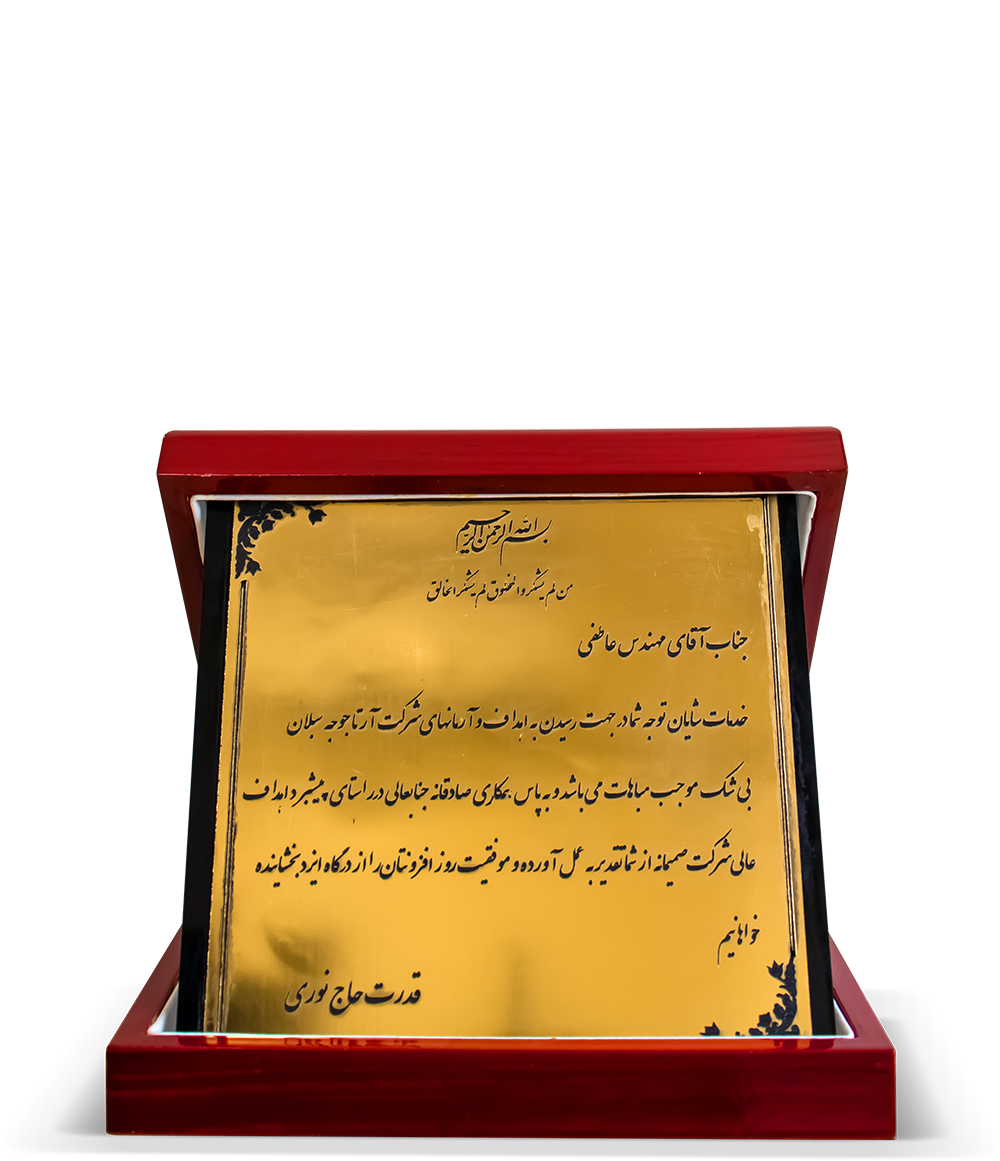 بسم الله الرحمن الرحیم
من لم یشکر المخلوق لم یشکر الخالق
جناب آقای مهندس عاطفی
خدمات شایان توجه شما در جهت رسیدن به اهداف و آرمانهای شرکت آرتا جوجه سبلان
بی شک موجب مباهات می باشد و به پاس همکاری صادقانه جنابعالی در راستای پیشبرد اهداف
عالی شرکت صمیمانه از شما تقدیر به عمل آورده و موفقیت روز افزونتان را از درگاه ایزد بخشاینده
خواهانیم
قدرت حاج نوری